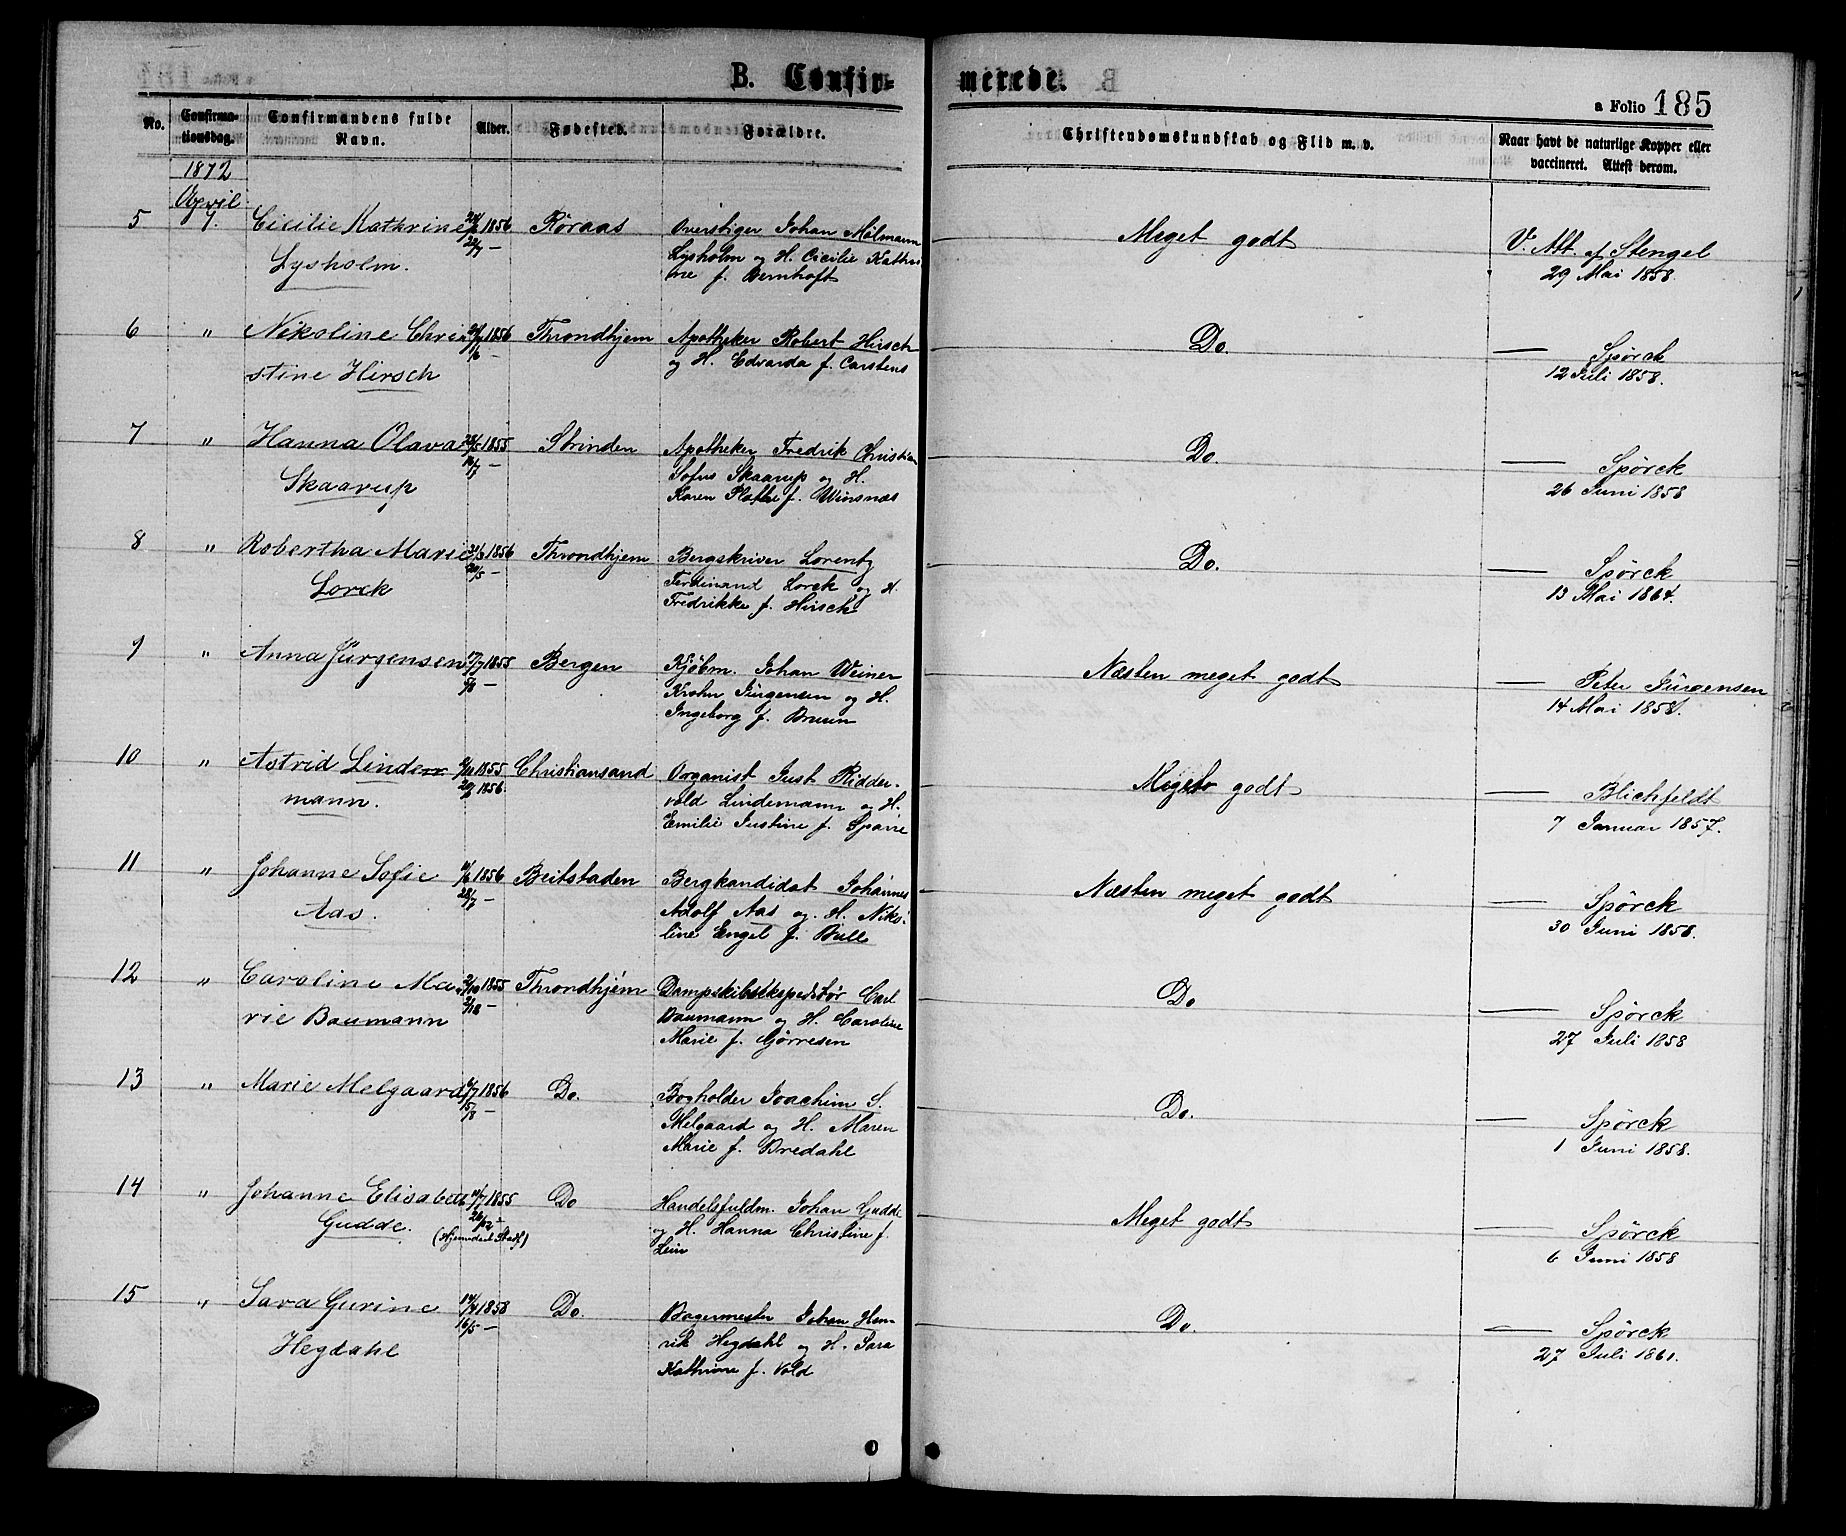 B. Confirmerede.
a Folio 185
No. Confirmationsdag. Confirmandens fulde Navn. Alder. Fødested. Forældre. Christendomskundskab og Flid m. v. Naar havt de naturlige Kopper eller vaccineret. Attest derom.
1872
April
5 7. Cicilie Kathrine 1856 Røraas Overstiger Johan Mølmann Meget godt V. Att. af Stengel
Lysholm. 22/7 — Lysholm og H. Cicilie Kathri- 29 Mai 1858.
ne f. Bernhoft
6 " Nikoline Chri- 1856 Throndhjem Apotheker Robert Hirsch Do. — Spörck
stine Hirsch og H. Edvarda f. Carstens 12 Juli 1858.
7 " Hanna Olava 1855 Strinden Apotheker Fredrik Christian Do. — Spörck
Skaarup Sofus Skaarup og H. 26 Juni 1858
Karen Plathe f. Winsnæs
8 " Robertha Marie 1856 Throndhjem Bergskriver Lorentz Do. — Spörck
Lorck 20/5 — Ferdinand Lorck og H. 13 Mai 1864.
Fredrikke f. Hirsch
9 " Anna Jürgensen 1855 Bergen Kjøbm. Johan Weiner Næsten meget godt — Peter Jürgensen
5/8 — Krohn Jürgensen og H. 14 Mai 1858.
Ingeborg f. Bruun
10 " Astrid Linde- 1855 Christiansand Organist Just Ridder- Meget godt — Blichfeldt
mann. 1856. vold Lindemann og H. 7 Januar 1857.
Emilie Justine f. Sparre
11 " Johanne Sofie 1856 Beitstaden Bergkandidat Johannes Næsten meget godt — Spörck
Aas. 28/7 — Adolf Aas og H. Niko- 30 Juni 1858.
line Engel f. Bull
12 " Caroline Ma- 2/10 1855 Throndhjem Dampskibsekspeditør Carl Do — Spörck
rie Baumann 2/12 — Baumann og H. Caroline 27 Juli 1858
Marie f. Gjørresen
13 " Marie Melgaard 1856 Do. Bogholder Joachim S. Do. — Spörck
15/8 — Melgaard og H. Maren 1 Juni 1858.
Marie f. Bredahl
14 " Johanne Elisabeth 1855 Do Handelsfuldm. Johan Gudde Meget godt — Spörck
Gudde. 26/12 — og H. Hanna Christine f. 6 Juni 1858
(Hjemdøbt Stadf.) Lein
15 " Sara Gurine 14/4 1858 Do. Bagermester Johan Hen- Do. — Spörck
Hegdahl 16/5 — rik Hegdahl og H. Sara 27 Juli 1861.
Kathrine f. Vold